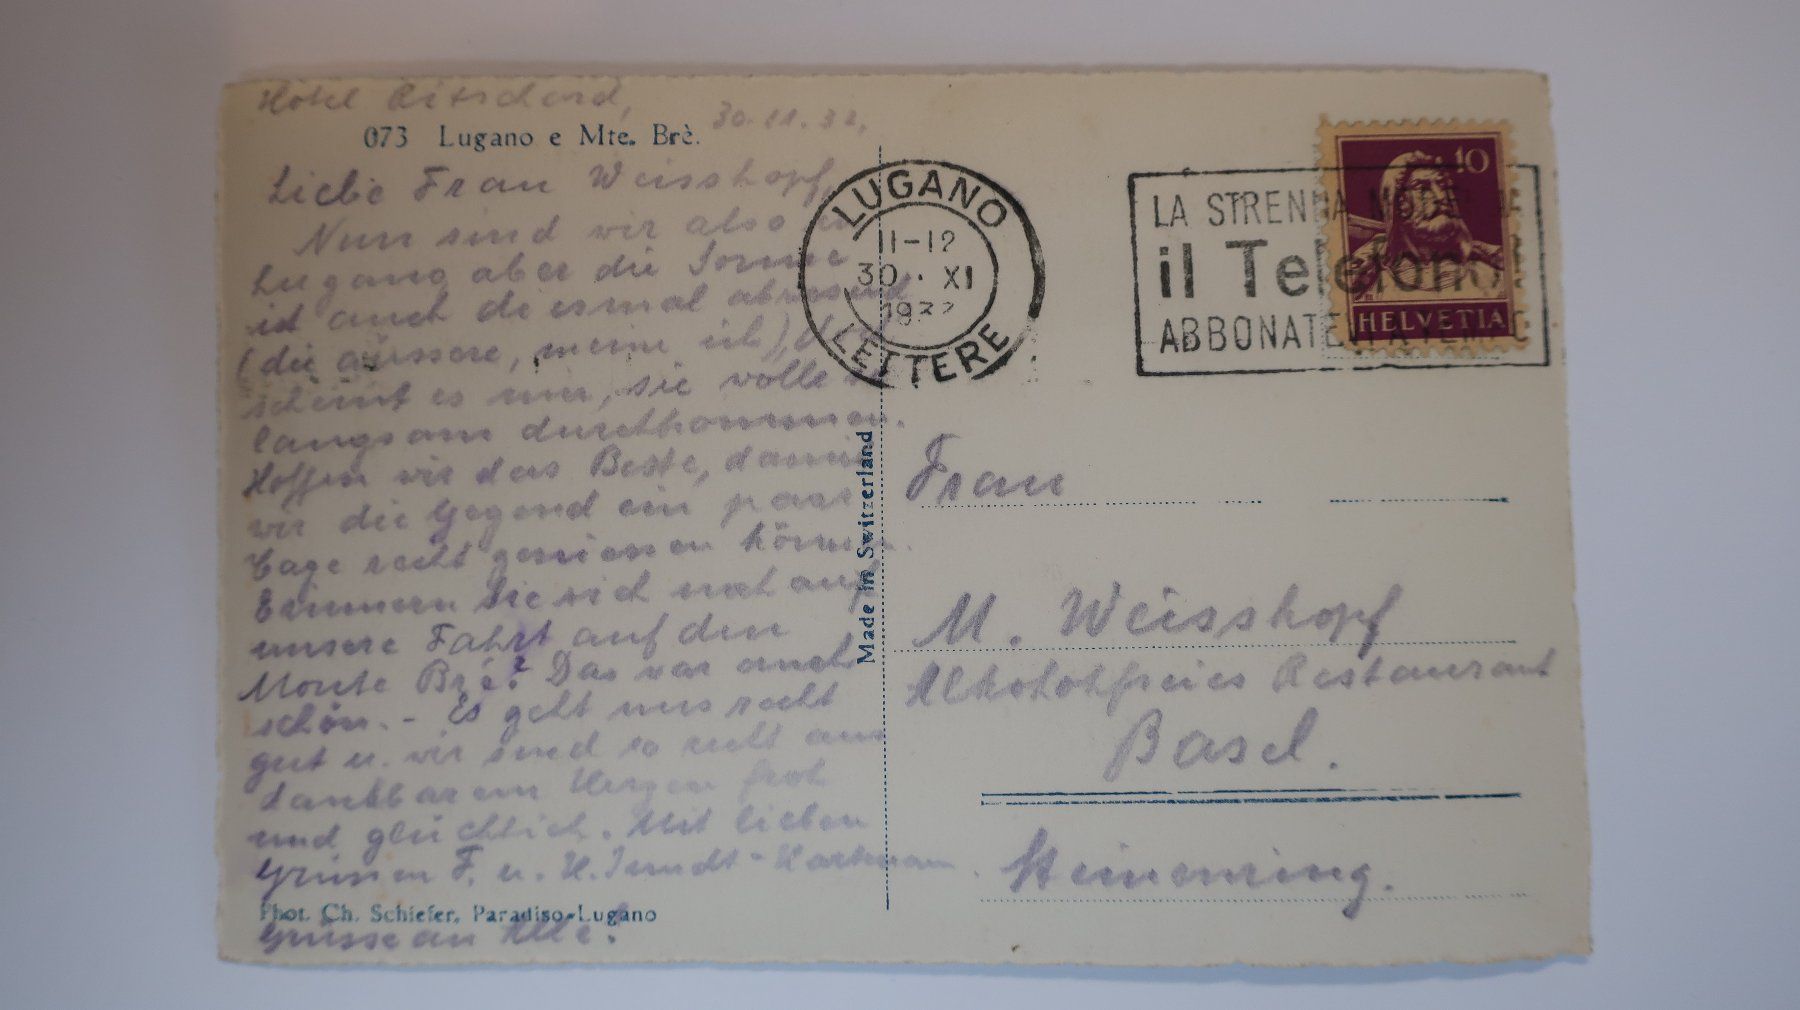 Hotel Ritschard,
30.11.32.
073 Lugano e Mte. Brè.
Liebe Frau Weisskopf,
Nun sind wir also in
Lugano aber die Sonne
ist auch diesmal abwesend
(die äussere, meine ich), doch
scheint es mir, sie wolle
langsam durchkommen.
Hoffen wir das Beste, damit
wir die Gegend ein paar
Tage recht geniessen können.
Erinnern Sie sich noch auf
unsere Fahrt auf den
Monte Brè? Das war auch
schön. - Es geht uns recht
gut u. wir sind so recht aus
dankbarem Herzen froh
und glücklich. Mit lieben
Grüssen F. u. H.
Phot. Ch. Schiefer, Paradiso-Lugano
Grüsse an Alle!
Made in Switzerland
LUGANO
11-12
30. XI
1932
LETTERE
LA STRENNA
il Telefono!
ABBONATEVI
10
HELVETIA
Frau
M. Weisskopf
Alkoholfreies Restaurant
Basel.
Steinenring.